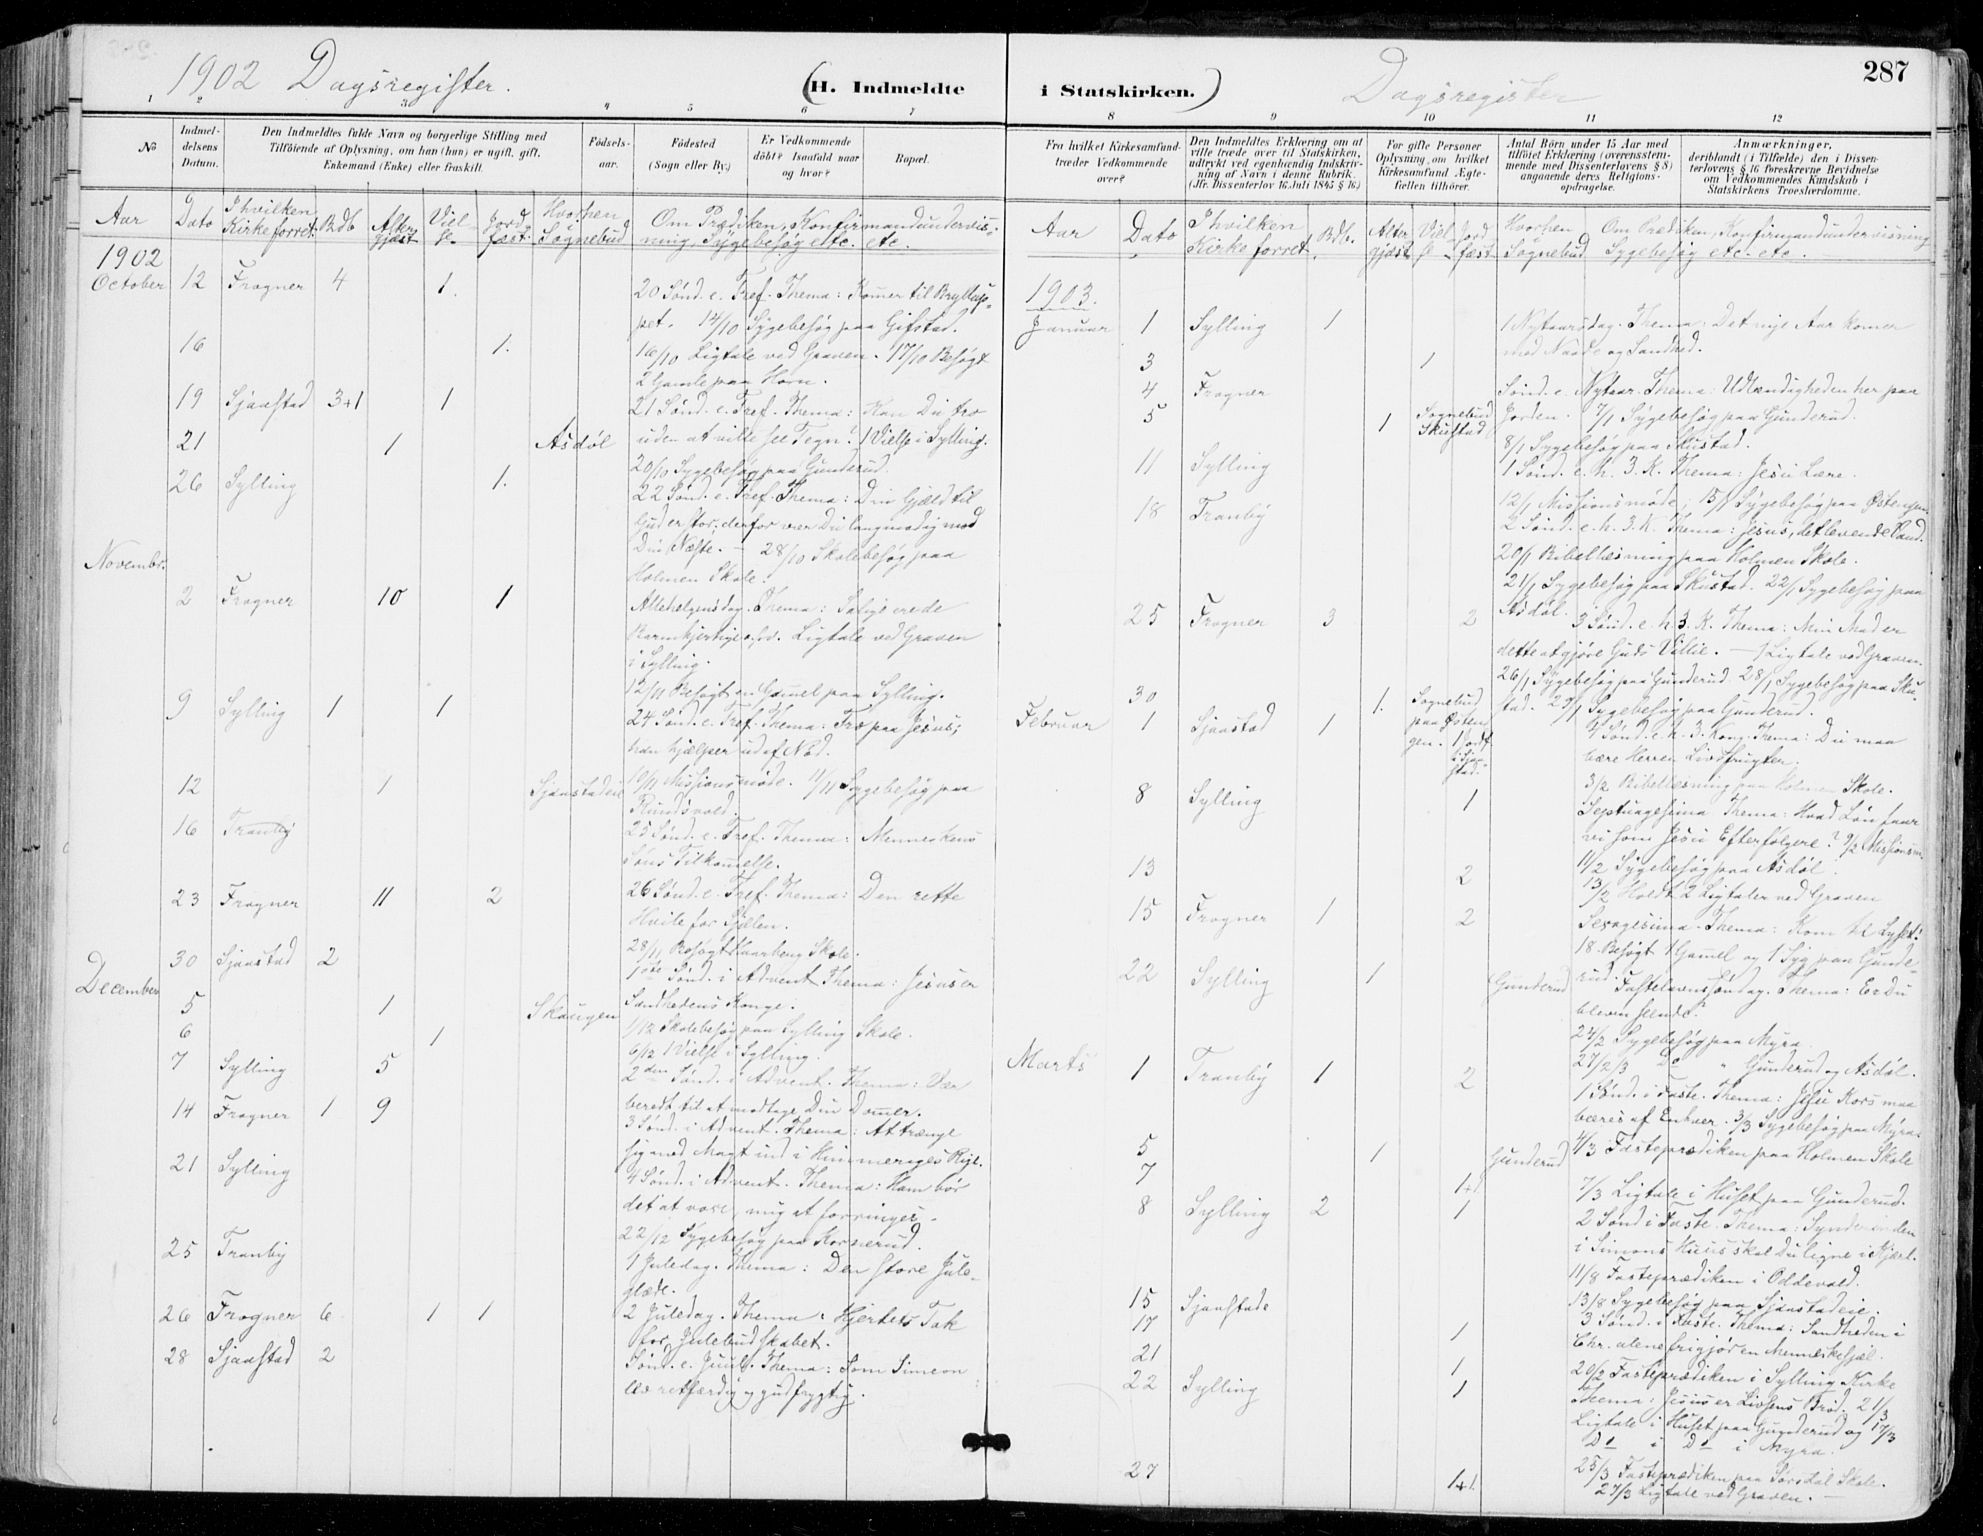 1902 Dagsregister.
(H. Indmeldte
1 2 3 4 5 6 7
No
Indmeldelsens Datum.
Den Indmeldtes fulde Navn og borgerlige Stilling med
Tilføiende af Oplysning, om han (hun) er ugift, gift,
Enkemand (Enke) eller fraskilt.
Fødselsaar.
Fødested
(Sogn eller By.)
Er Vedkommende
døbt? Isaafald naar
og hvor?
Bopæl.
Aar Dato I hvilken Kirke forret. Bdb Altergjæst Vielse Jordfæst. Hvorhen i Sognebud
Om Prædiken, Konfirmandundervisning, Sygebesøg etc. etc.
1902
October 12 Frogner 4 1. 20 Sønd. e. Tref. Thema: Komer til Bryllup-
pet. 14/10 Sygebesøg paa Gifstad.
16 1. 16/10 Ligtale ved Graven. 17/10 Besøgt
2 Gamle paa Horn.
19 Sjaastad 3+1 1 21 Sønd. e. Tref. Thema: Kan Du tro
21 1 Asdøl uden at ville see Tegn! 1 Vielse i Sylling.
20/10 Sygebesøg paa Gunderud.
26 Sylling 1. 22 Sønd. e. Tref. Thema: Din Gjæld til
Gud er stor; derfor vær Du langmodig mod
Din Næste. – 28/10 Skolebesøg paa
Novembr. Holmen Skole.
2 Frogner 10 1 Allehelgensdag. Thema: Salige ere de
Barmhjertige o.s.v. Ligtale ved Graven
i Sylling.
12/11 Besøgt en Gamel paa Sylling.
9 Sylling 1 1 24 Sønd. e. Tref. Thema: Tro paa Jesus;
han hjælper ud af Nød.
12 1 Sjaastadeie 10/11 Missionsmøde. 11/11 Sygebesøg paa
16 Tranby 25 Sønd. e. Tref. Thema: Menneskens
Søns Tilkomelse.
23 Frogner 11 2 26 Sønd. e. Tref. Thema: Den rette
Hvile for Sjælen.
28/11 Besøgt Skole.
30 Sjaastad 2 1ste Sønd. i Advent Thema: Jesus er
December 5 1 Skaugen Sandhedens Konge.
6 1 1/12 Skolebesøg paa Sylling Skole.
6/12 1 Vielse i Sylling.
7 Sylling 5 2den Sønd. i Advent. Thema: Vær
beredt til at modtage Din Domer.
14 Frogner 1 9 3 Sønd. i Advent. Thema: At trænge
sig med Magt ind i Himmeriges Rige.
21 Sylling 4 Sønd. i Advent. Thema: Ham bør
det at voxe, mig at forringes.
22/12 Sygebesøg paa Kornerud.
25 Tranby 1 Juledag. Thema: Den store Jule-
glæde.
26 Frogner 6 1 1 2 Juledag. Thema: Hjertets Tak
for Julebudskabet.
28 Sjaastad 2 Sønd. e. Juul. Thema: Som Simeon
lev retfærdig og gudfrygtig.
i Statskirken.) Dagsregister
287
8 9 10 11 12
Fra hvilket Kirkesamfund
træder Vedkommende
over?
Den Indmeldtes Erklæring om at
ville træde over til Statskirken,
udtrykt ved egenhændig Indskriv-
ning af Navn i denne Rubrik.
(Jfr. Dissenterlov 16 Juli 1845 § 16.)
For gifte Personer
Oplysning om hvilket
Kirkesamfund Ægte-
fællen tilhører.
Antal Børn under 15 Aar med
tilføiet Erklæring (overensstem-
mende med Dissenterlovens § 8)
angaaende deres Religions-
opdragelse.
Anmærkninger,
deriblandt (i Tilfælde) den i Dissen-
terlovens § 16 foreskrevne Bevidnelse
om Vedkommendes Kundskab i
Statskirkens Troeslærdomme.
Aar Dato I hvilken Kirke forret. Bdb. Altergjæst Vielse Jordfæst Hvorhen i Sognebud
Om Prædiken, Konfirmandundervisning
Sygebesøg etc. etc.
1903.
Januar 1 Sylling 1 1 Nytaarsdag. Thema: Det nye Aar komer
med Naade og Sandhed.
3 1
4 Frogner Sønd. e. Nytaar. Thema: Udlændigheden her paa
5 1 Sognebud Skustad Jorden. 7/1 Sygebesøg paa Gunderud.
8/1 Sygebesøg paa Skustad.
11 Sylling 1 Sønd. e. h. 3. K. Thema: Jesu Lære.
12/1 Missionsmøde; 15/1 Sygebesøg paa Østengen.
18 Tranby 2 Sønd. e. h. 3. K. Thema: Jesus, det levende Vand.
20/1 Bibellæsning paa Holmen Skole.
21/1 Sygebesøg paa Skustad. 22/1 Sygebesøg paa
Asdøl.
25 Frogner 3 2 3 Sønd. e. h. 3. K. Thema: Min Mad er
dette at gjøre Guds Villie. – 1 Ligtale ved Graven.
26/1 Sygebesøg paa Gunderud. 28/1 Sygebesøg paa Sku-
30 1. Sognebud paa Østengen. 1 Jordf. i Sjaastad. stad. 29/1 Sygebesøg paa Gunderud.
Februar 1 Sjaastad 1 4 Sønd. e. h. 3. Kong. Thema: Du maa
bære Herren Livsfrugter.
3/2 Bibellæsning paa Holmen Skole.
8 Sylling 1 Septuagesima Thema: Hvad Løn faar
vi som Jesu Efterfølgere? 9/2 Missionsm.
13 2 11/2 Sygebesøg paa Asdøl.
13/2 Holdt 2 Ligtaler ved Graven
15 Frogner 1 2 Sexagesima. Thema: Kom til Lyset!
18. Besøgt 1 Gamel og 1 Syg paa Gunde-
22 Sylling 1 Gunderud rud. Fastelavnssøndag. Thema: Er Du
bleven seende?
24/2 Sygebesøg paa Myra.
27/2/3 Do " Gunderud og Asdøl.
Marts 1 Tranby 1 2 1 Sønd. i Faste. Thema: Jesu Kors maa
bæres af Enhver. 3/3 Sygebesøg paa Myra.
5 1 Gunderud 4/3 Fasteprædiken paa Holmen Skole
7 1+1 7/3 Ligtale i Huset paa Gunderud.
8 Sylling 2 1 2 Sønd i Faste. Thema: Synderinden
i Simons Huus skal Du ligne i Hjært.
11/3 Fasteprædiken i Oddevald.
13/3 Sygebesøg paa Sjaastadeie.
15 Sjaastade 3 Sønd. i Faste. Thema: Sandheden i
17 1 Chr. alene frigjør en Menneskesjæl.
21 1 20/2 Fasteprædiken i Sylling Kirke
22 Sylling 1 Thema: Jesus er Livsens Brød. 21/3
Ligtale i Huset paa Gunderud og 17/3
Do i Do i Myra.
27 1+1 25/3 Fasteprædiken paa Sørsdal Skole.
27/3 Ligtale ved Graven. –